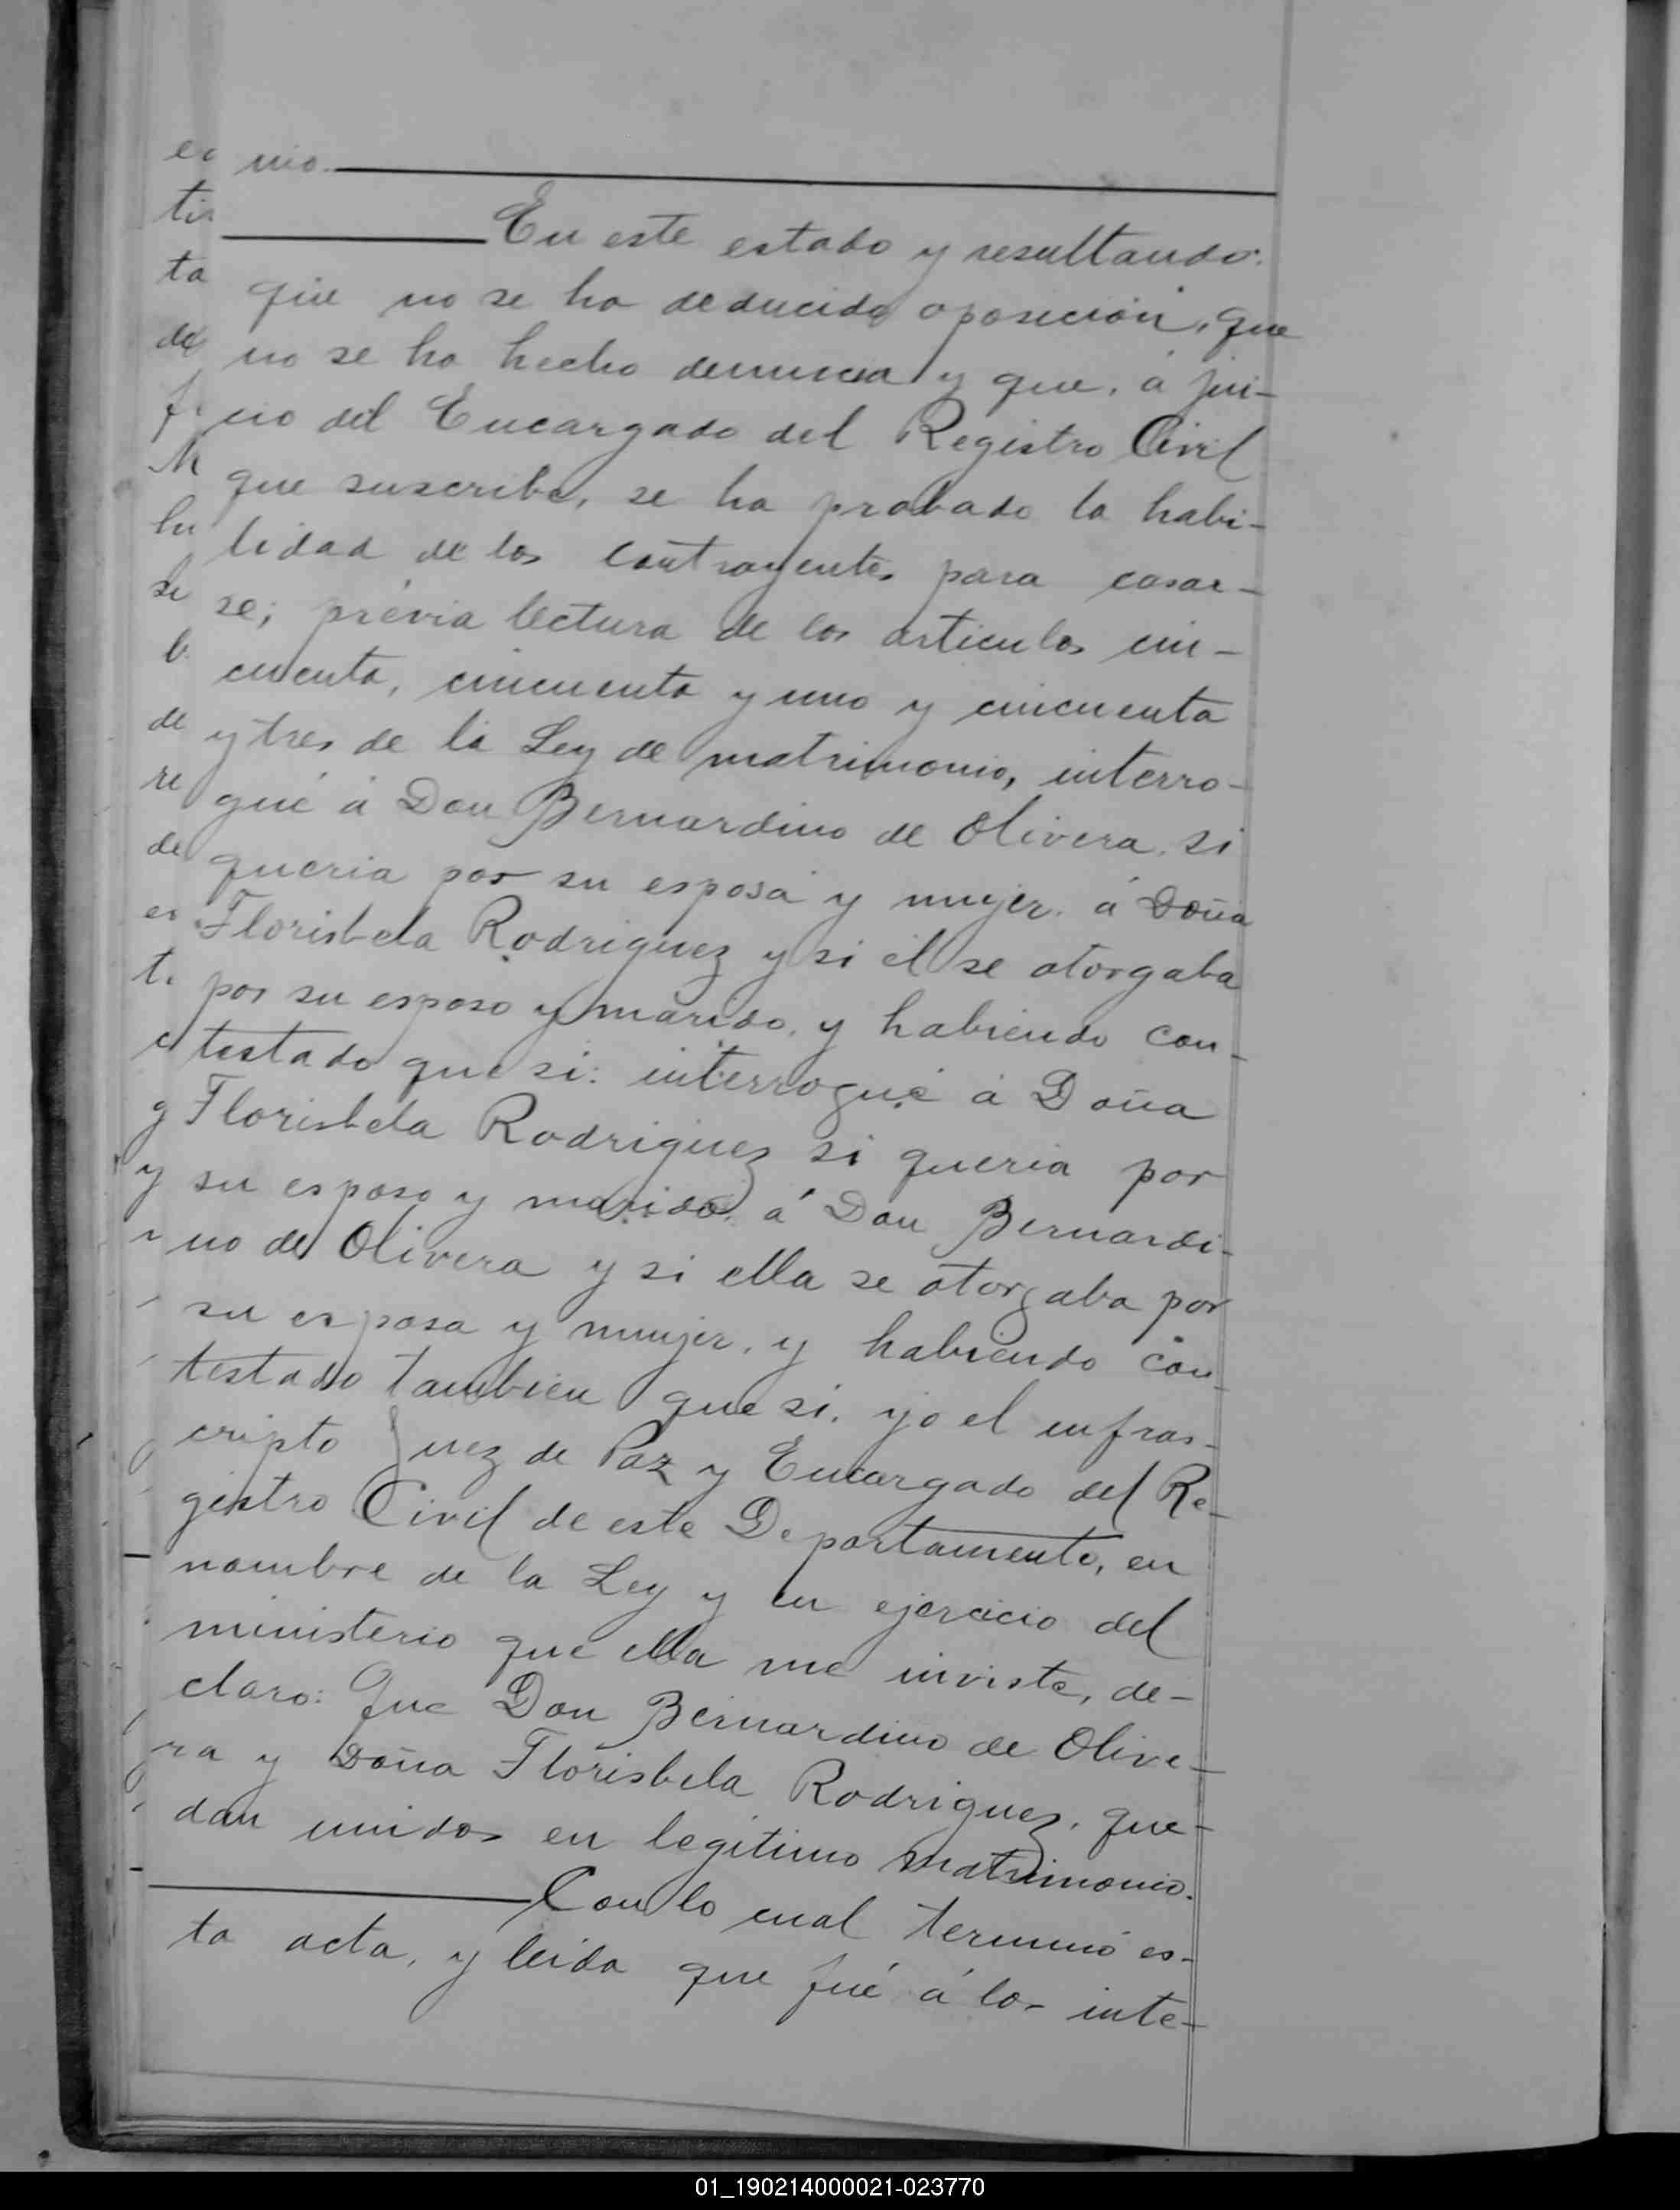 nio.
En este estado y resultando:
que no se ha deducido oposición, que
no se ha hecho denuncia y que, á jui-
cio del Encargado del Registro Civil
que suscribe, se ha probado la habi-
lidad de los contrayentes para casar-
se; prévia lectura de los articulos cin-
cuenta, cincuenta y uno y cincuenta
y tres de la Ley de matrimonio, interro-
gué á Don Bernardino de Olivera, si
queria por su esposa y mujer, á Doña
Florisbela Rodriguez y si él se otorgaba
por su esposo y marido, y habiendo con-
testado que si: interrogué á Doña
Florisbela Rodriguez si queria por
su esposo y marido, á Don Bernardi-
no de Olivera y si ella se otorgaba por
su esposa y mujer, y habiendo con-
testado tambien que si, yo el infras-
cripto Juez de Paz y Encargado del Re-
gistro Civil de este Departamento, en
nombre de la Ley y en ejercicio del
ministerio que ella me inviste, de-
claro: Que Don Bernardino de Olive-
ra y Doña Florisbela Rodriguez, que-
dan unidos en legitimo matrimonio.
Con lo cual terminó es-
ta acta, y leida que fué á los inte-
01_190214000021-023770